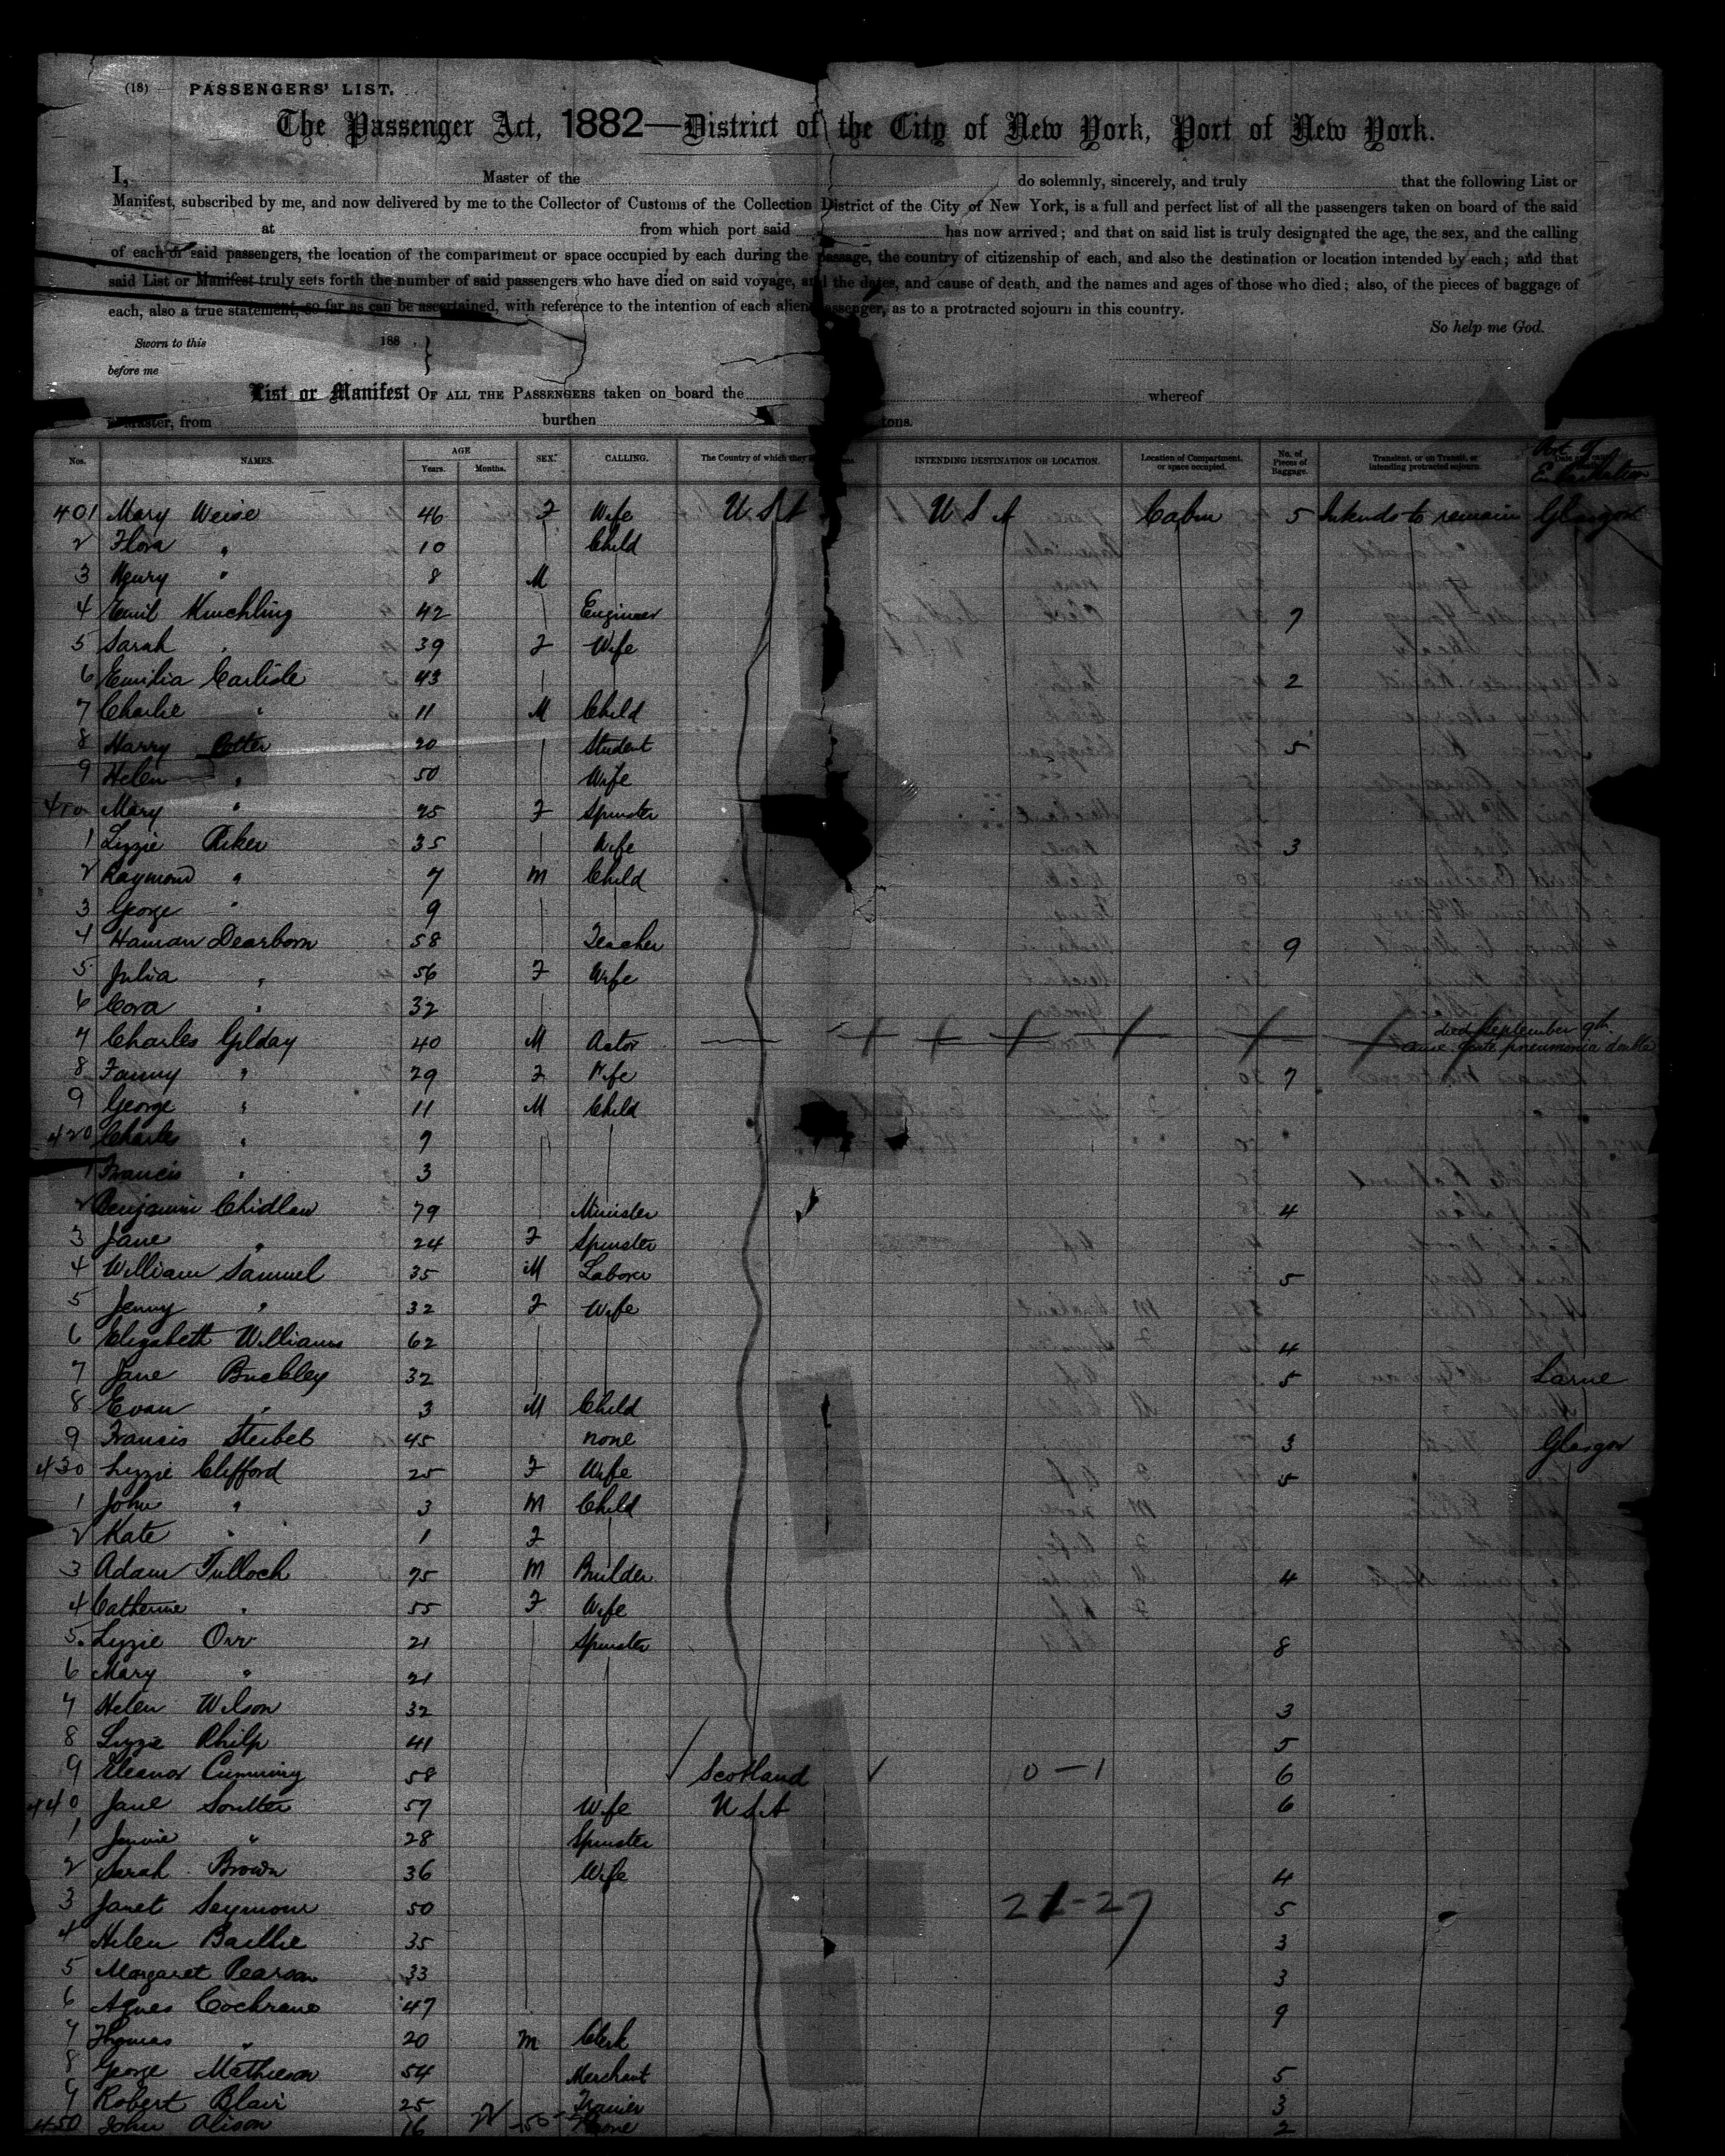 (18) PASSENGERS' LIST.
The Passenger Act, 1882—District of the City of New York, Port of New York.
I, Master of the do solemnly, sincerely, and truly that the following List or
Manifest, subscribed by me, and now delivered by me to the Collector of Customs of the Collection District of the City of New York, is a full and perfect list of all the passengers taken on board of the said
at from which port said has now arrived; and that on said list is truly designated the age, the sex, and the calling
of each of said passengers, the location of the compartment or space occupied by each during the passage, the country of citizenship of each, and also the destination or location intended by each; and that
said List or Manifest truly sets forth the number of said passengers who have died on said voyage, and the dates, and cause of death, and the names and ages of those who died; also, of the pieces of baggage of
each, also a true statement, so far as can be ascertained, with reference to the intention of each alien passenger, as to a protracted sojourn in this country.
So help me God.
Sworn to this 188 .
before me
List or Manifest OF ALL THE PASSENGERS taken on board the whereof
Master, from burthen tons.
Nos. NAMES. AGE Years. Months. SEX. CALLING. The Country of which they INTENDING DESTINATION OR LOCATION. Location of Compartment, or space occupied. No. of Pieces of Baggage. Transient, or on Transit, or intending protracted sojourn. Port of Embarkation
401 Mary Weise 46 F Wife U S A U S A Cabin 5 Intends to remain Glasgow
2 Flora " 10 Child
3 Henry " 8 M
4 Emil Kinchling 42 Engineer 7
5 Sarah " 39 F Wife
6 Emilia Carlisle 43 2
7 Charlie " 11 M Child
8 Harry Potter 20 Student 5
9 Helen " 50 Wife
410 Mary " 25 F Spinster
1 Lizzie Riker 35 Wife 3
2 Raymond " 7 M Child
3 George " 9
4 Haman Dearborn 58 Teacher 9
5 Julia " 56 F Wife
6 Cora " 32
7 Charles Gilday 40 M Actor died September 9th. cause. acute pneumonia double
8 Fanny " 29 F Wife 7
9 George " 11 M Child
420 Charles " 7
1 Francis " 3
2 Benjamin Chidlaw 79 Minister 4
3 Jane " 24 F Spinster
4 William Samuel 35 M Laborer 5
5 Jenny " 32 F Wife
6 Elizabeth Williams 62 4
7 Jane Buckley 32 5 Larne
8 Evan " 3 M Child
9 Francis Steibel 45 none 3 Glasgow
430 Lizzie Clifford 25 F Wife 5
1 John " 3 M Child
2 Kate " 1 F
3 Adam Tulloch 75 M Builder 4
4 Catherine " 55 F Wife
5 Lizzie Orr 21 Spinster 8
6 Mary " 21
7 Helen Wilson 32 3
8 Lizzie Philp 41 5
9 Eleanor Cumming 58 Scotland 0 — 1 6
440 Jane Soutter 57 Wife U S A 6
1 Jennie " 28 Spinster
2 Sarah Brown 36 Wife 4
3 Janet Seymour 50 5
4 Helen Baillie 35 3
5 Margaret Pearson 33 3
6 Agnes Cochrane 47 9
7 Thomas " 20 M Clerk
8 George Mathieson 54 Merchant 5
9 Robert Blair 25 3
450 John Alison 16 none 2